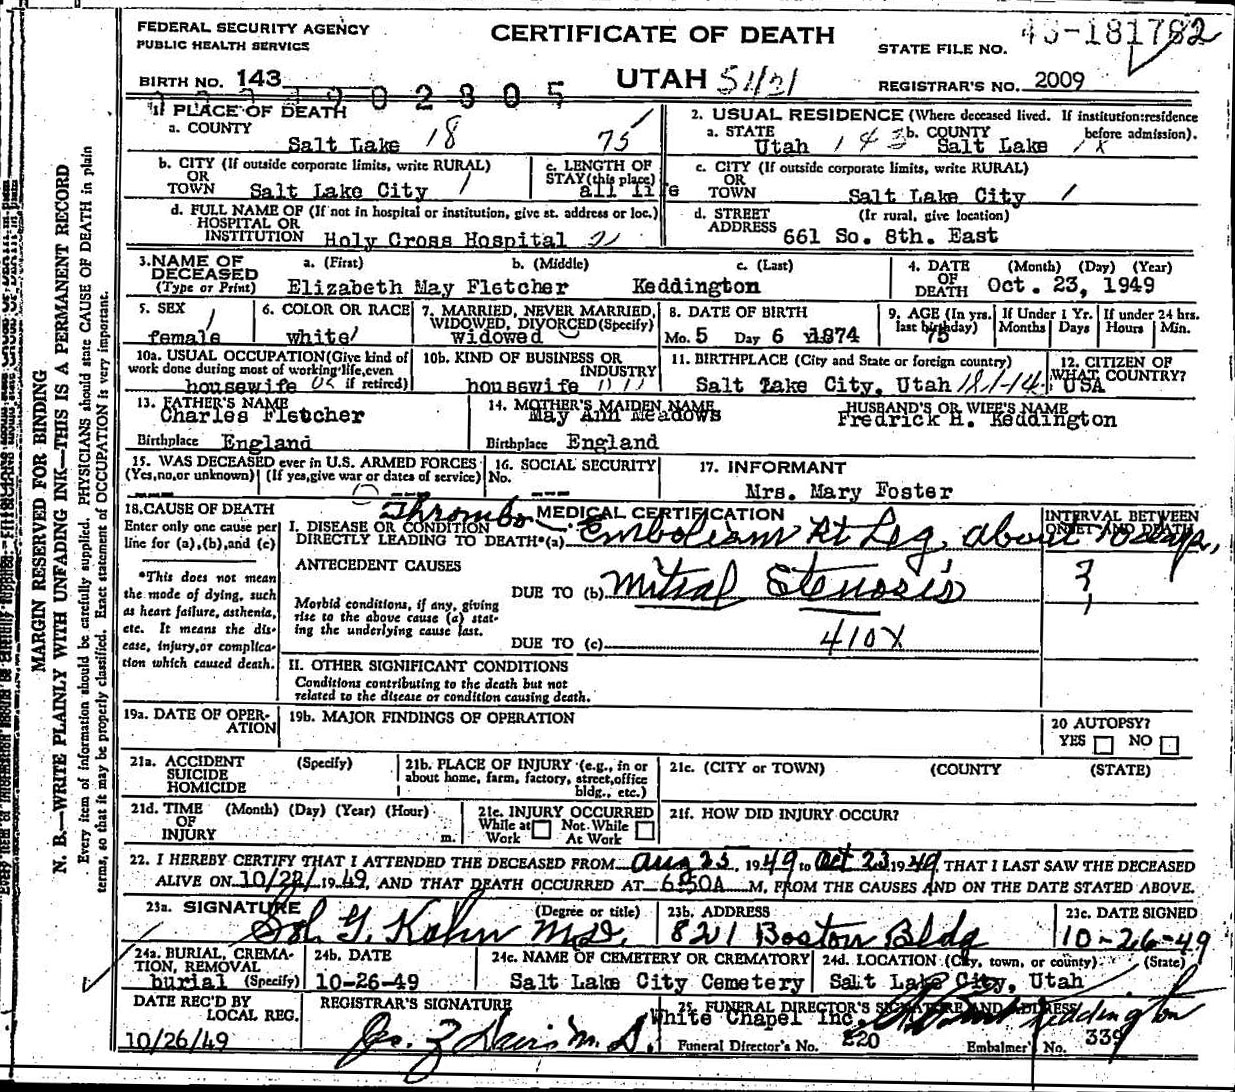 FEDERAL SECURITY AGENCY
PUBLIC HEALTH SERVICE
CERTIFICATE OF DEATH
STATE FILE NO.
BIRTH NO. 143
UTAH 51/21
REGISTRAR'S NO. 2009
1 PLACE OF DEATH
a. COUNTY
Salt Lake 18 75
2. USUAL RESIDENCE (Where deceased lived. If institution:residence before admission).
a. STATE b. COUNTY
Utah 143 Salt Lake
b. CITY (If outside corporate limits, write RURAL)
OR
TOWN Salt Lake City 1
c. LENGTH OF
STAY (this place)
all life
c. CITY (If outside corporate limits, write RURAL)
OR
TOWN Salt Lake City 1
d. FULL NAME OF (If not in hospital or institution, give st. address or loc.)
HOSPITAL OR
INSTITUTION Holy Cross Hospital 21
d. STREET (Ir rural, give location)
ADDRESS 661 So. 8th. East
3. NAME OF a. (First) b. (Middle) c. (Last)
DECEASED
(Type or Print) Elizabeth May Fletcher Keddington
4. DATE (Month) (Day) (Year)
OF
DEATH Oct. 23, 1949
5. SEX
female
6. COLOR OR RACE
white
7. MARRIED, NEVER MARRIED,
WIDOWED, DIVORCED (Specify)
Widowed
8. DATE OF BIRTH
Mo. 5 Day 6 1874
9. AGE (In yrs. last birthday)
75
If Under 1 Yr.
Months Days
If under 24 hrs.
Hours Min.
10a. USUAL OCCUPATION (Give kind of
work done during most of working life, even
if retired)
housewife
10b. KIND OF BUSINESS OR
INDUSTRY
housewife
11. BIRTHPLACE (City and State or foreign country)
Salt Lake City, Utah
12. CITIZEN OF
WHAT COUNTRY?
USA
13. FATHER'S NAME
Charles Fletcher
Birthplace England
14. MOTHER'S MAIDEN NAME
May Ann Meadows
Birthplace England
HUSBAND'S OR WIFE'S NAME
Fredrick H. Keddington
15. WAS DECEASED ever in U.S. ARMED FORCES
(Yes,no,or unknown) (If yes,give war or dates of service)
16. SOCIAL SECURITY
No.
17. INFORMANT
Mrs. Mary Foster
18. CAUSE OF DEATH
Enter only one cause per
line for (a),(b),and (c)
*This does not mean
the mode of dying, such
as heart failure, asthenia,
etc. It means the dis-
ease, injury,or complica-
tion which caused death.
MEDICAL CERTIFICATION
I. DISEASE OR CONDITION Thrombo -
DIRECTLY LEADING TO DEATH*(a) Embolism Rt Leg, about 10 days,
INTERVAL BETWEEN
ONSET AND DEATH
ANTECEDENT CAUSES
Morbid conditions, if any, giving
rise to the above cause (a) stat-
ing the underlying cause last.
DUE TO (b) Mitral Stenosis ?
DUE TO (c) 410X
II. OTHER SIGNIFICANT CONDITIONS
Conditions contributing to the death but not
related to the disease or condition causing death.
19a. DATE OF OPER-
ATION
19b. MAJOR FINDINGS OF OPERATION
20 AUTOPSY?
YES NO
21a. ACCIDENT (Specify)
SUICIDE
HOMICIDE
21b. PLACE OF INJURY (e.g., in or
about home, farm, factory, street,office
bldg., etc.)
21c. (CITY or TOWN) (COUNTY (STATE)
21d. TIME (Month) (Day) (Year) (Hour)
OF
INJURY m.
21e. INJURY OCCURRED
While at Work Not While At Work
21f. HOW DID INJURY OCCUR?
22. I HEREBY CERTIFY THAT I ATTENDED THE DECEASED FROM Aug 23, 1949 to Oct 23 1949, THAT I LAST SAW THE DECEASED
ALIVE ON 10/22/ 1949, AND THAT DEATH OCCURRED AT 6:50A M, FROM THE CAUSES AND ON THE DATE STATED ABOVE.
23a. SIGNATURE (Degree or title)
Sol. G. Kahn M.D.
23b. ADDRESS
821 Boston Bldg
23c. DATE SIGNED
10-26-49
24a. BURIAL, CREMA-
TION, REMOVAL
burial (Specify)
24b. DATE
10-26-49
24c. NAME OF CEMETERY OR CREMATORY
Salt Lake City Cemetery
24d. LOCATION (City, town, or county) (State)
Salt Lake City, Utah
DATE REC'D BY
LOCAL REG.
10/26/49
REGISTRAR'S SIGNATURE
25. FUNERAL DIRECTOR'S SIGNATURE AND ADDRESS
White Chapel Inc. Keddington
Funeral Director's No. 220 Embalmer's No. 339
MARGIN RESERVED FOR BINDING
N. B.—WRITE PLAINLY WITH UNFADING INK—THIS IS A PERMANENT RECORD
Every item of information should be carefully supplied. PHYSICIANS should state CAUSE OF DEATH in plain
terms, so that it may be properly classified. Exact statement of OCCUPATION is very important.